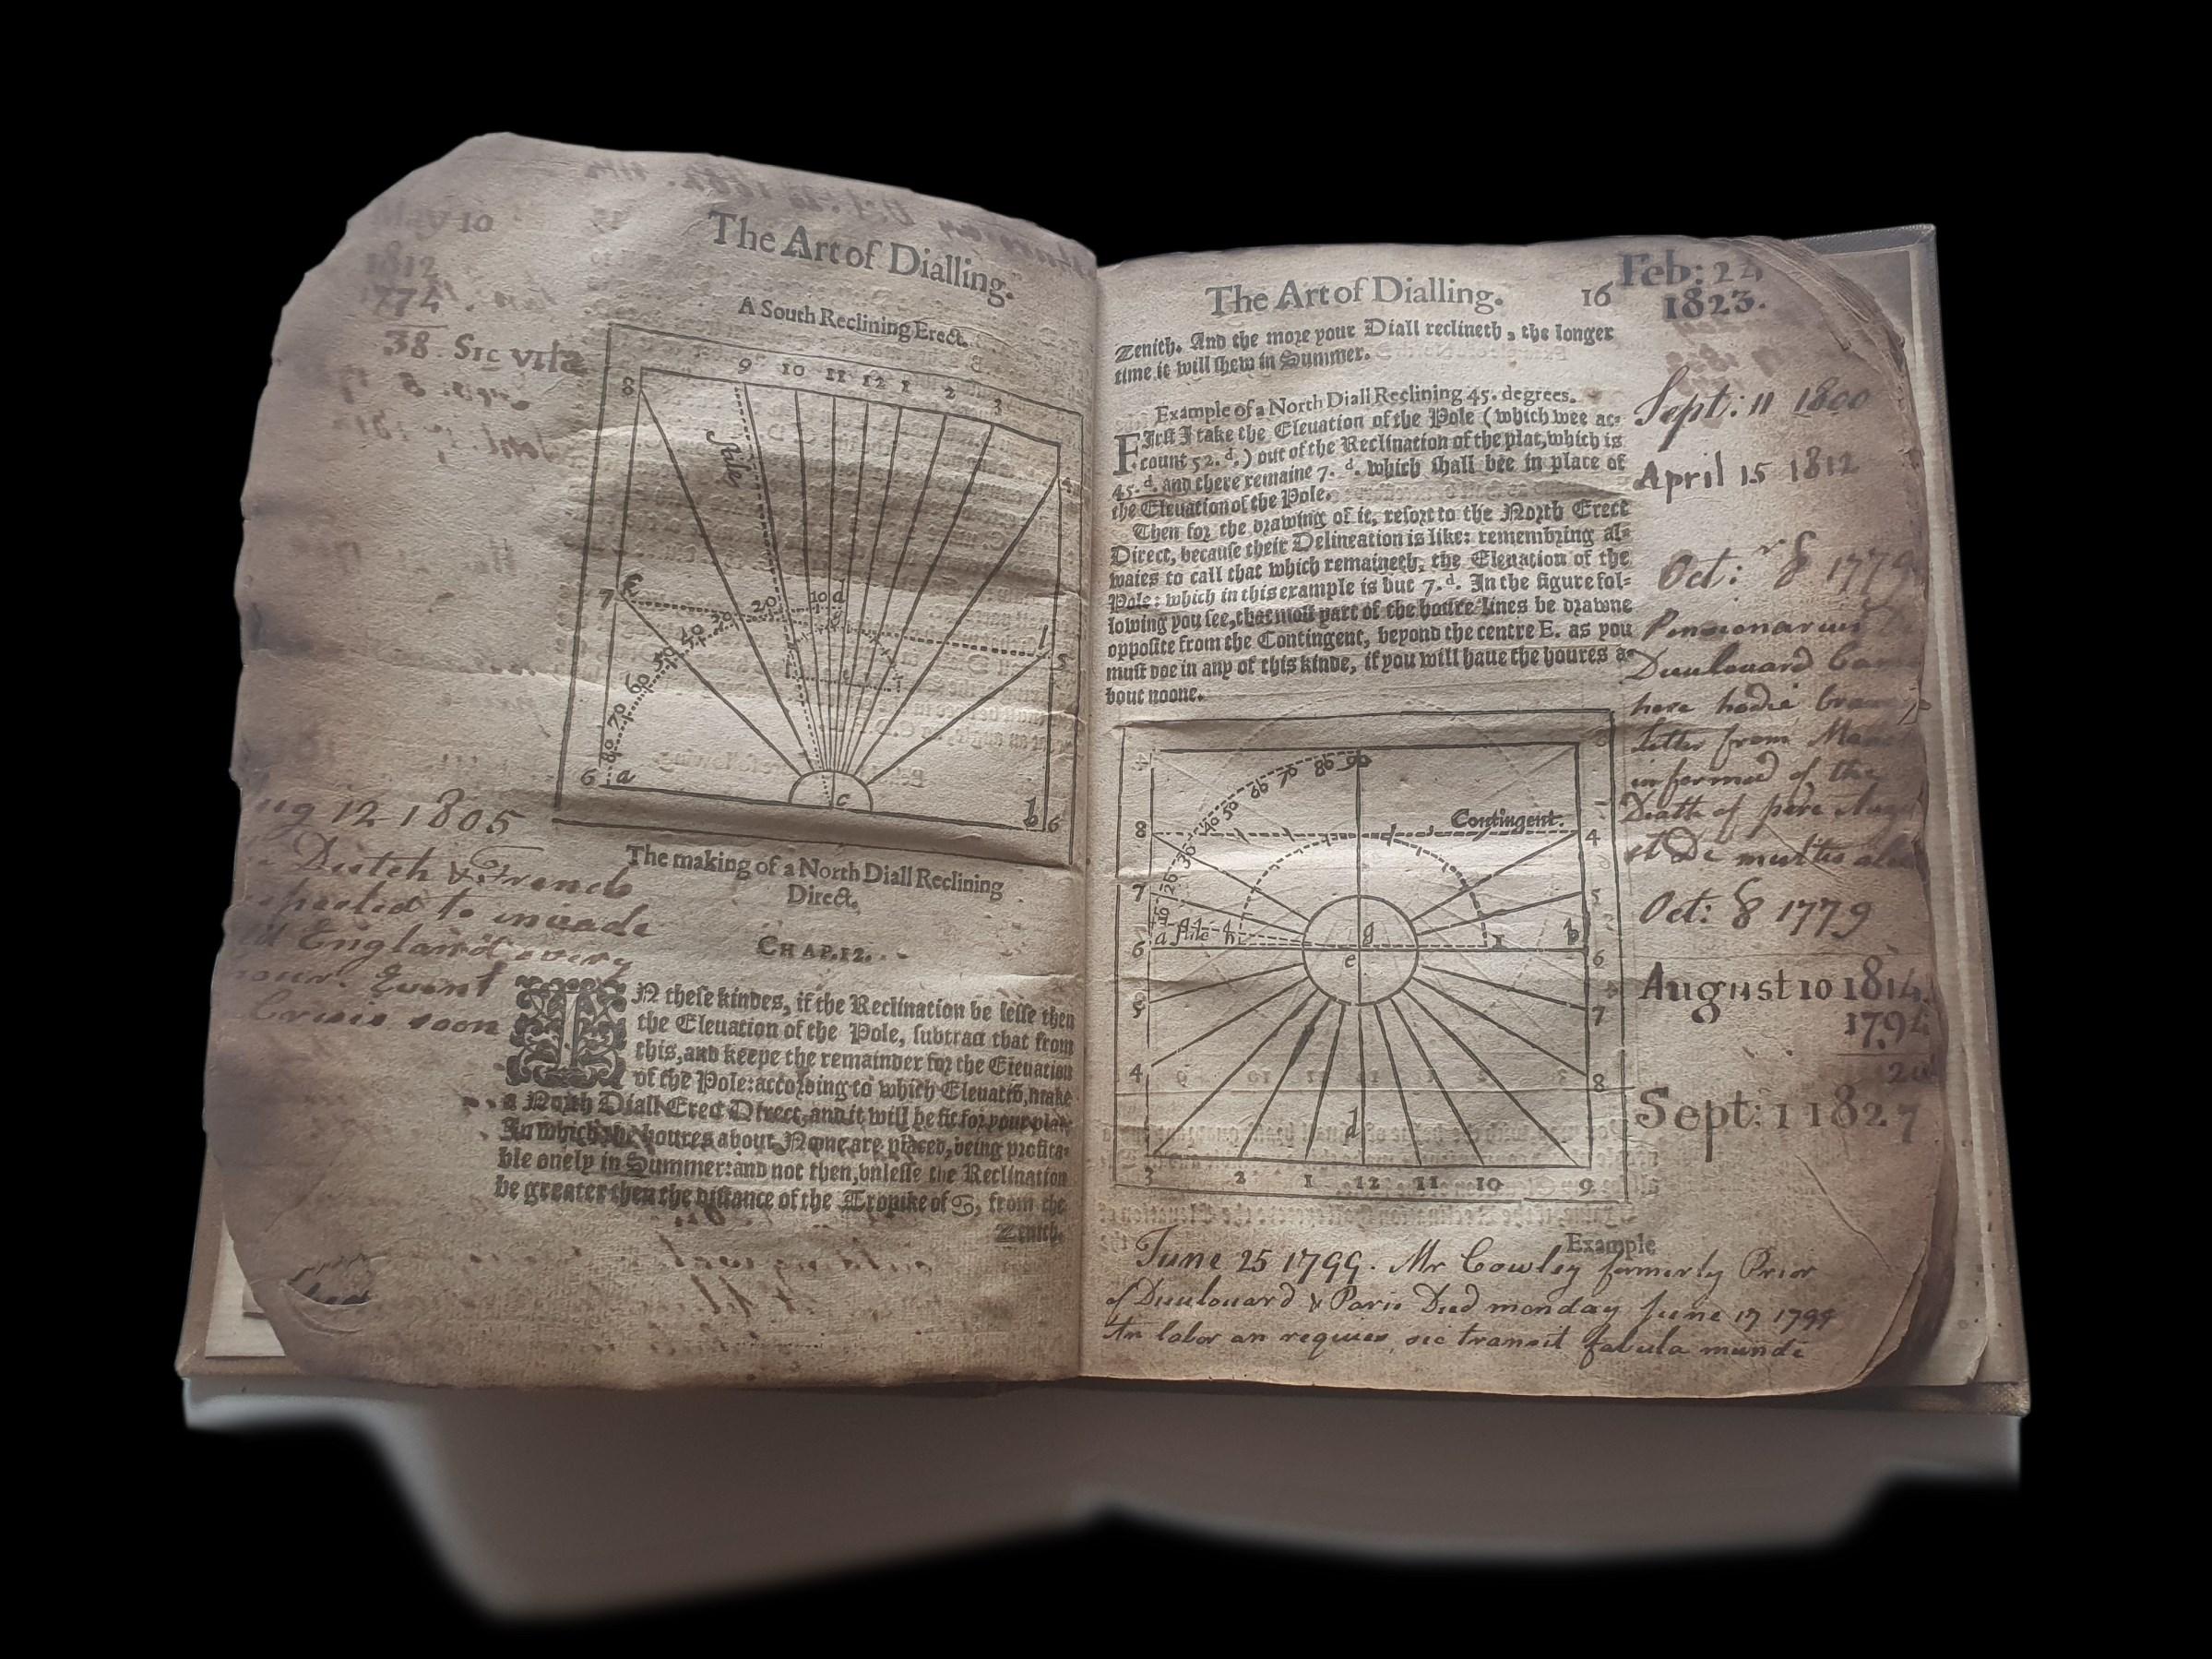 The Art of Dialling.
A South Reclining Erect.
8 9 10 11 12 1 2 3
4
Stile
7 e
30 20 10 d
40
50
60
70
80
l
5
6 a
c
b 6
The making of a North Diall Reclining
Direct.
CHAP. 12.
IN these kindes, if the Reclination be lesse then
the Eleuation of the Pole, subtract that from
this, and keepe the remainder for the Eleuation
of the Pole: according to which Eleuatiõ, make
a North Diall Erect Direct, and it will be fit for your plat.
In which the houres about Noone are placed, being profita-
ble onely in Summer: and not then, vnlesse the Reclination
be greater then the distance of the Tropike of ♋, from the
Zenith.
May 10
1812
1774
38 Sic vita
Aug 12 1805
Dutch & French
expected to invade
old England every
hour. Event
Crisis soon
The Art of Dialling. 16
Zenith. And the more your Diall reclineth, the longer
time it will shew in Summer.
Example of a North Diall Reclining 45. degrees.
FIrst I take the Eleuation of the Pole (which wee ac-
count 52. d.) out of the Reclination of the plat, which is
45. d. and there remaine 7. d. which shall bee in place of
the Eleuation of the Pole.
Then for the drawing of it, resort to the North Erect
Direct, because their Delineation is like: remembring al-
waies to call that which remaineth, the Eleuation of the
Pole: which in this example is but 7. d. In the figure fol-
lowing you see, that most part of the houre lines be drawne
opposite from the Contingent, beyond the centre E. as you
must doe in any of this kinde, if you will haue the houres a-
bout noone.
40 50 60 70 80 90
Contingent.
8 4
7 5
a stile h g I b
6 e 6
5 7
4 8
d
3 2 1 12 11 10 9
Example
Feb: 24
1823.
Sept: 11 1800
April 15 1812
Oct: r 8 1779
Pensionarius
Dieulouard Came
here hodie
letter from
informed of the
Death of pere
et De multis aliis
Oct: 8 1779
August 10 1814.
1794
20
Sept: 1 1827
June 25 1799. Mr Cowley formerly Prior
of Dieulouard & Paris Died monday June 17 1799
An labor an requies, sic transit fabula mundi